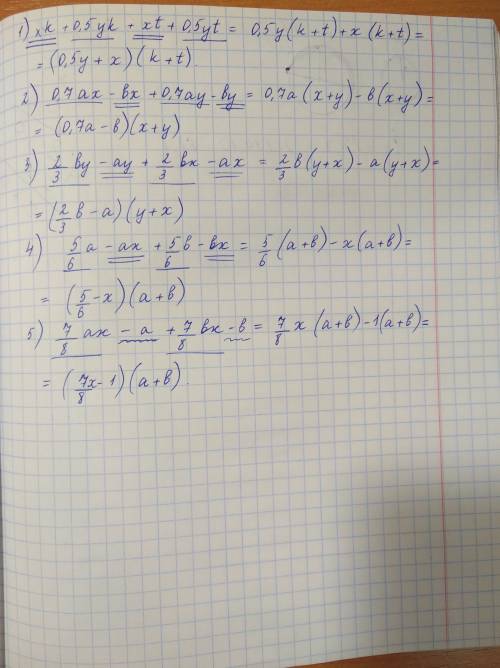 1) xk + 0,5yk + xt + 0,5yt = 0,5y(k+t)+x(k+t)=
=(0,5y+x)(k+t).
2) 0,7ax - вx + 0,7ay - вy = 0,7a(x+y)-в(x+y)=
= (0,7a-в)(x+y)
3) 2/3 вy - ay + 2/3 вx - ax = 2/3 в(y+x)-a(y+x)=
=(2/3 в-a)(y+x)
4) 5/6 a - ax + 5/6 в - вx = 5/6 (a+в)-x(a+в)=
= (5/6 -x)(a+в)
5) 7/8 ax - a + 7/8 вx - в = 7/8 x (a+в)-1(a+в)=
= (7x/8 - 1)(a+в).